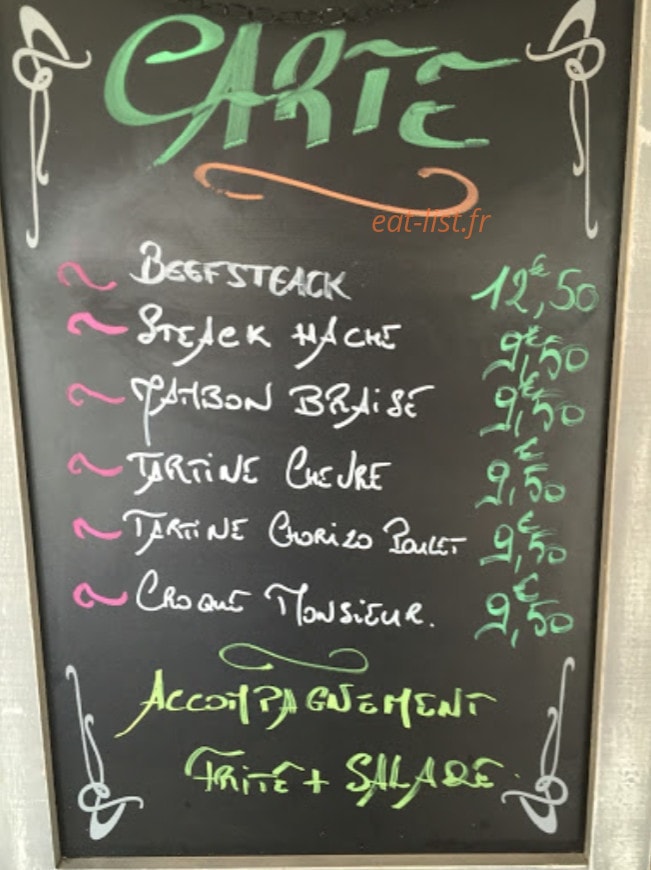 CARTE
eat-list.fr
~ BEEFSTEACK 12€,50
~ STEACK HACHÉ 9€,50
~ JAMBON BRAISÉ 9€,50
~ TARTINE CHEVRE 9€,50
~ TARTINE CHORIZO POULET 9€,50
~ CROQUE MONSIEUR. 9€,50
ACCOMPAGNEMENT
FRITE + SALADE.